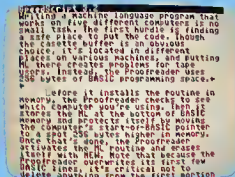 SpeedScript 3.2
Writing a machine language program that
works on five different computers is no
small task. The first hurdle is finding
a safe place to put the code. Though
the cassette buffer is an obvious
choice, it's located in different
places on various machines, and putting
ML there creates problems for tape
users. Instead, The Proofreader uses
bytes of BASIC programming space.
Before it installs the routine in
memory, the Proofreader checks to see
which computer you're using. Then it
stores the ML at the bottom of BASIC
memory and protects itself by moving
the computer's start-of-BASIC pointer
to a spot bytes higher in memory.
Once that's done, the Proofreader
activates the ML routine and erases
itself with NEW. Note that because the
Proofreader overwrites its first few
BASIC lines, it's critical not to
delete anything from the